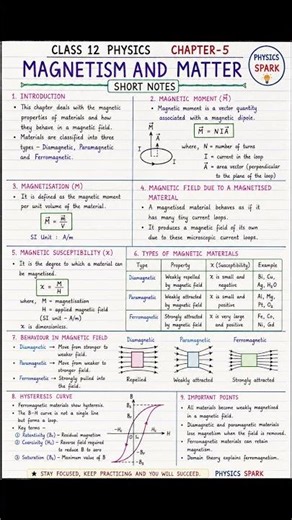 CLASS 12 PHYSICS CHAPTER-5
PHYSICS
SPARK
MAGNETISM AND MATTER
SHORT NOTES
1. INTRODUCTION
• This chapter deals with the magnetic
properties of materials and how
they behave in a magnetic field.
• Materials are classified into three
types - Diamagnetic, Paramagnetic and
Ferromagnetic.
2. MAGNETIC MOMENT (M⃗)
• Magnetic moment is a vector quantity
associated with a magnetic dipole.
M⃗
A⃗
I
M⃗ = N I A⃗
where, N = number of turns
I = current in the loop
A⃗ = area vector (perpendicular
to the plane of the loop)
3. MAGNETISATION (M)
• It is defined as the magnetic moment
per unit volume of the material.
SI Unit : A/m
4. MAGNETIC FIELD DUE TO A MAGNETISED
MATERIAL
• A magnetised material behaves as if it
has many tiny current loops.
• It produces a magnetic field of its own
due to these microscopic current loops.
5. MAGNETIC SUSCEPTIBILITY (χ)
• It is the degree to which a material can
be magnetised.
χ = M/H
where, M = magnetisation
H = applied magnetic field
(SI unit - A/m)
χ is dimensionless.
6. TYPES OF MAGNETIC MATERIALS
Type Property χ (Susceptibility) Example
Diamagnetic Weakly repelled by magnetic field χ is small and negative Bi, Cu, Ag, H₂O
Paramagnetic Weakly attracted by magnetic field χ is small and positive Al, Mg, Pt, O₂
Ferromagnetic Strongly attracted by magnetic field χ is very large and positive Fe, Co, Ni, Gd
7. BEHAVIOUR IN MAGNETIC FIELD
• Diamagnetic → Move from stronger to
weaker field.
• Paramagnetic → Move from weaker to
stronger field.
• Ferromagnetic → Strongly pulled into the
field.
Diamagnetic Paramagnetic Ferromagnetic
Repelled Weakly attracted Strongly attracted
8. HYSTERESIS CURVE
• Ferromagnetic materials show hysteresis.
• The B-H curve is not a single line
but forms a loop.
• Key terms -
① Retentivity (Bᵣ) - Residual magnetism
② Coercivity (H꜀) - Reverse field required
to reduce B to zero
③ Saturation (Bₛ) - Maximum value of B
B
H
9. IMPORTANT POINTS
• All materials become weakly magnetised
in a magnetic field.
• Diamagnetic and paramagnetic materials
lose magnetism when the field is removed.
• Ferromagnetic materials can retain
magnetism.
• Domain theory explains ferromagnetism.
★ STAY FOCUSED, KEEP PRACTICING AND YOU WILL SUCCEED.
PHYSICS SPARK